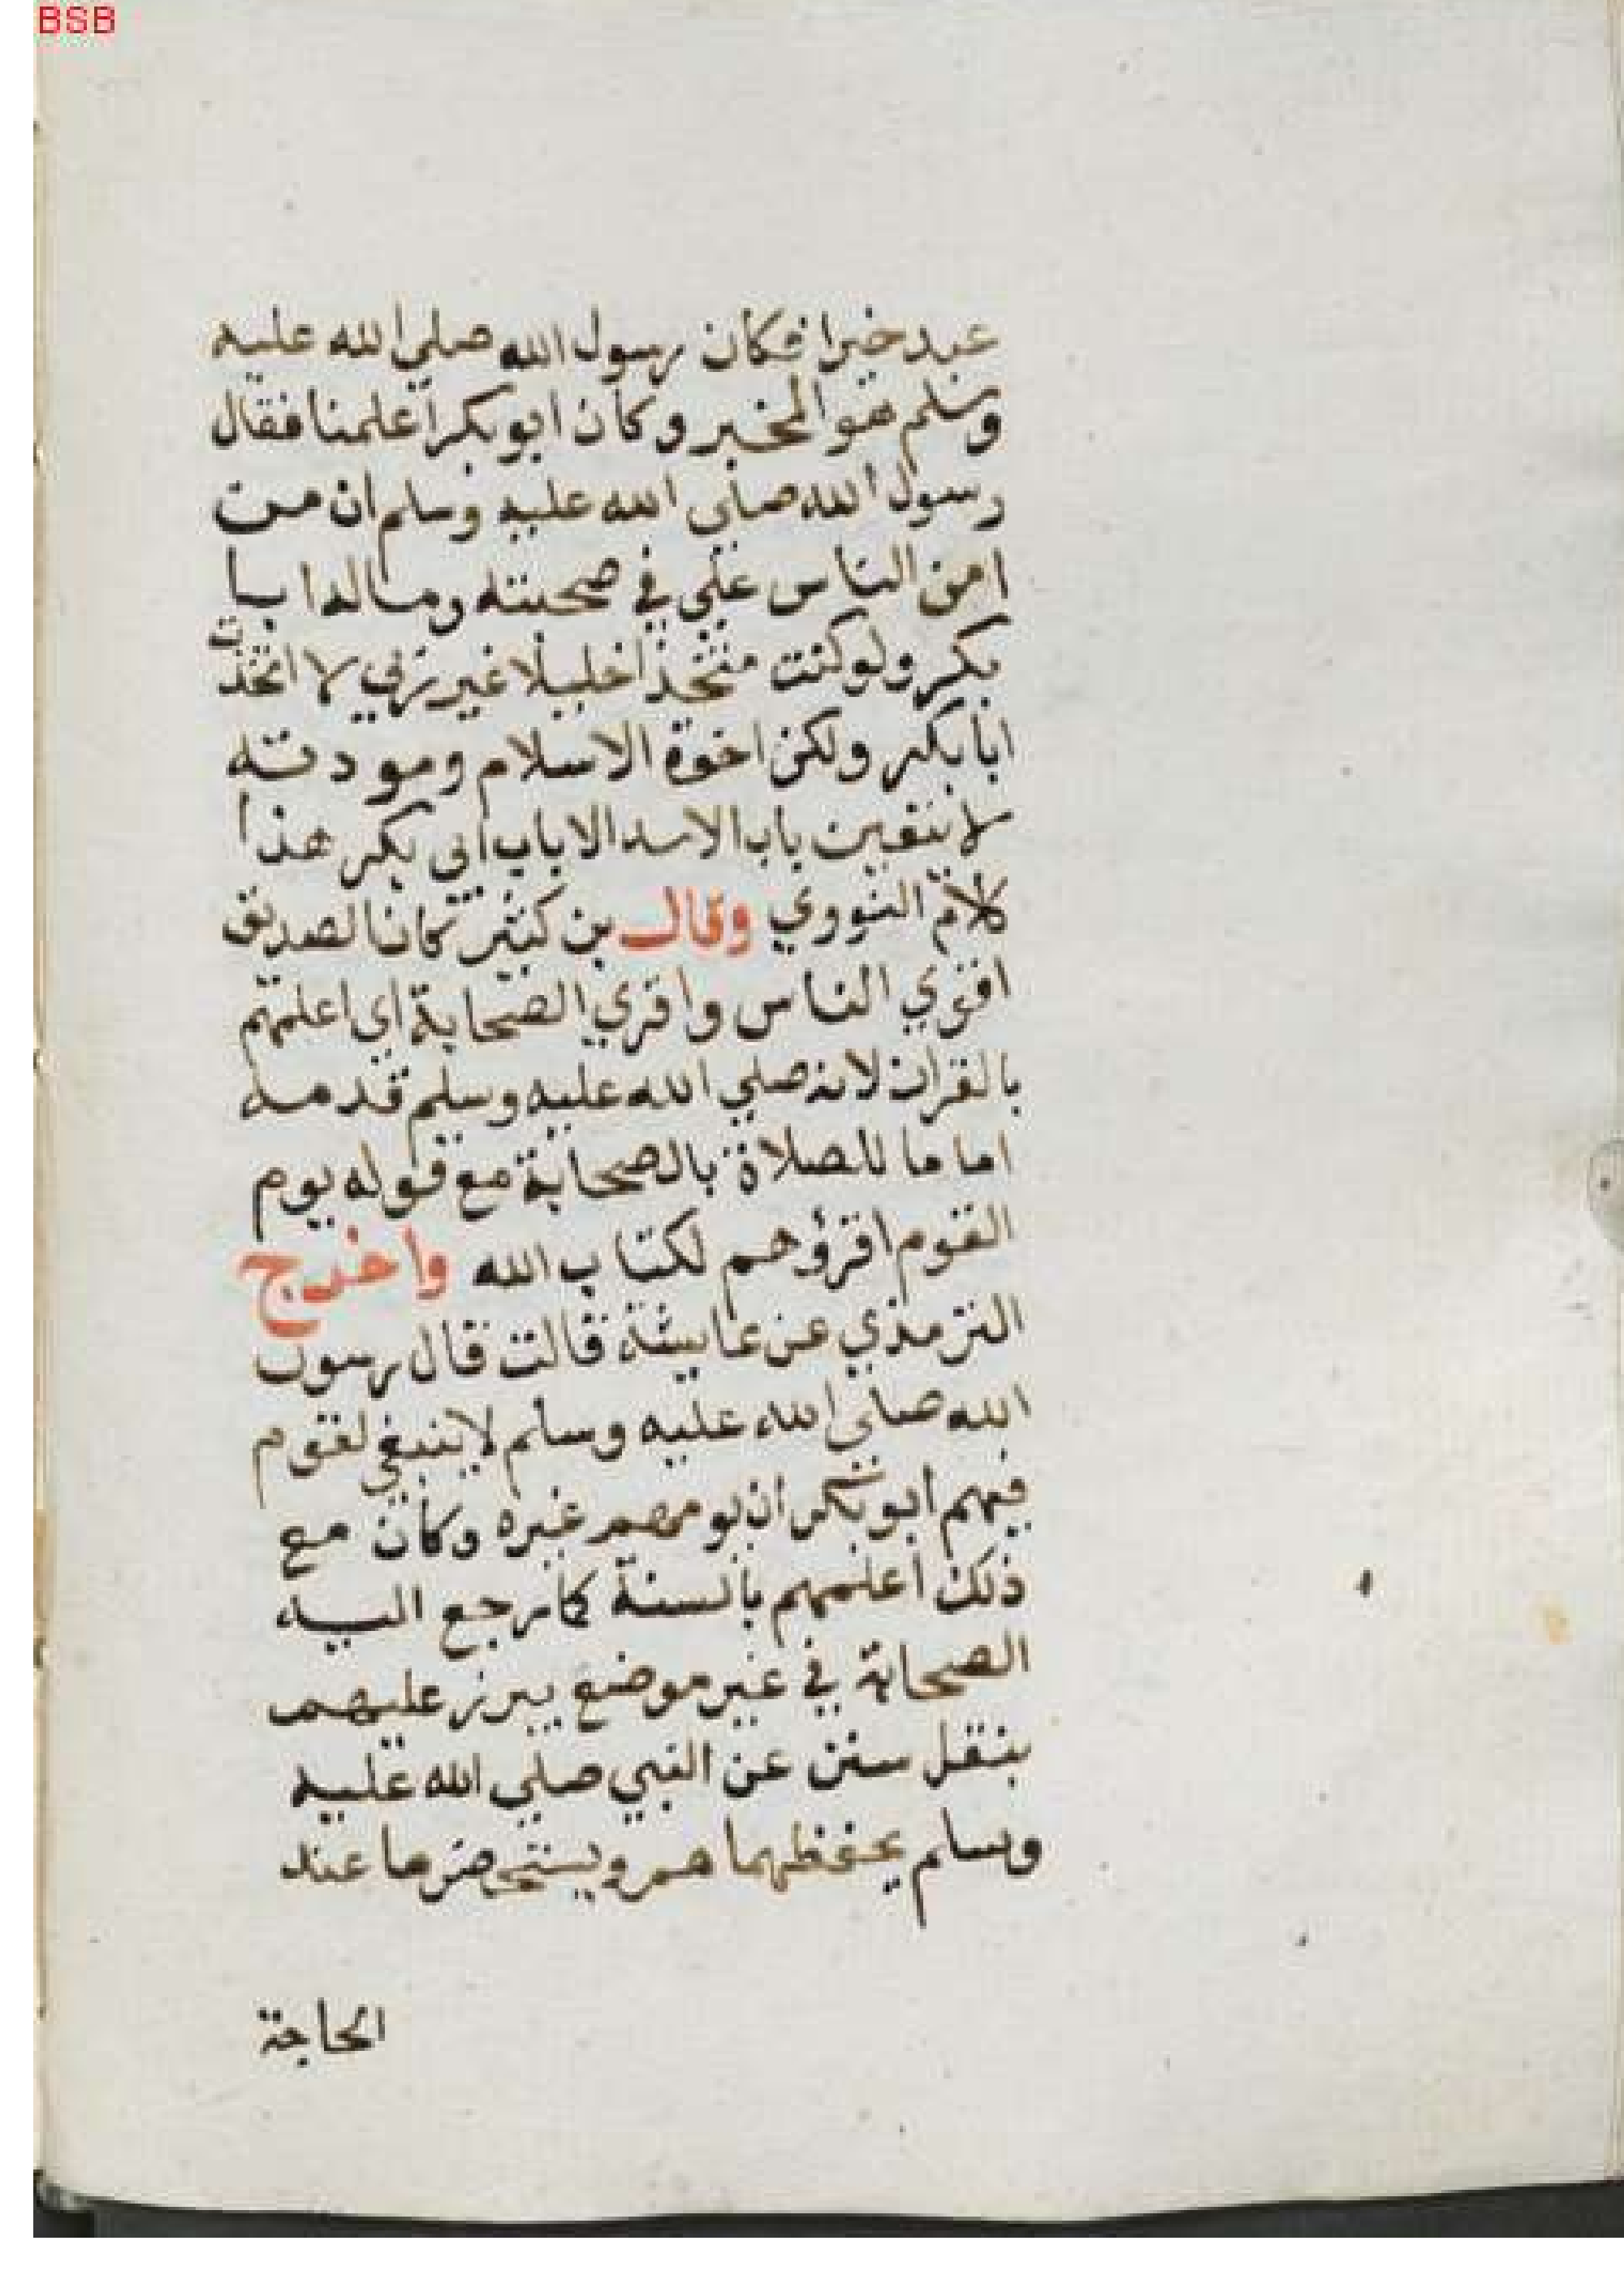 BSB
عبد خيرا فكان رسول الله صلي الله عليه
وسلم هو المخير وكان ابو بكر اعلمنا فقال
رسول الله صلي الله عليه وسلم ان من
امن الناس علي في صحبته وماله ابا
بكر ولو كنت متخذا خليلا غير ربي لا اتخذت
ابا بكر ولكن اخوة الاسلام ومودته
لا يبقين باب الا سد الا باب ابي بكر هذا
كلام النووي وقال بن كثير كان الصديق
اقري الناس واقري الصحابة اي اعلمهم
بالقران لانه صلي الله عليه وسلم قدمه
اماما للصلاة بالصحابة مع قوله يوم
القوم اقرؤهم لكتاب الله واخرج
الترمذي عن عايشة قالت قال رسول
الله صلي الله عليه وسلم لا ينبغي لقوم
فيهم ابو بكر ان يومهم غيره وكان مع
ذلك اعلمهم بالسنة كما رجع اليه
الصحابة في غير موضع يبرز عليهم
بنقل سنن عن النبي صلي الله عليه
وسلم يحفظها هم ويستحضرها عند
الحاجة